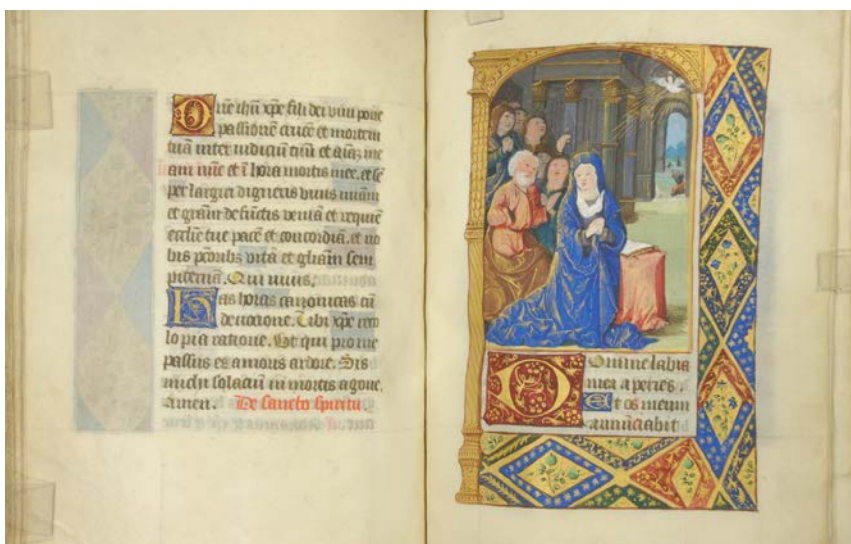 Dñe ihũ xp̃e fili dei viui pone
passionẽ crucẽ et mortem
tuã inter iudiciũ tuũ et aĩaʒ me
am nũc et ĩ hora mortis mee. et sẽ
per largiri digneris viuis miãm
et grãm defũctis veniã et requiẽ
ecclie tue pacẽ et concordiã. et no
bis pcõribʒ vitã et gliãm sem
piternã. Qui viuis.
Has horas canonicas cũ
deuocione. Tibi xp̃e reco
lo pia ratione. Et qui pro me
passus es amoris ardore. Sis
michi solaciũ in mortis agone.
Amen. De sancto spiritu.
Domine labia
mea aperies.
Et os meum
annũciabit